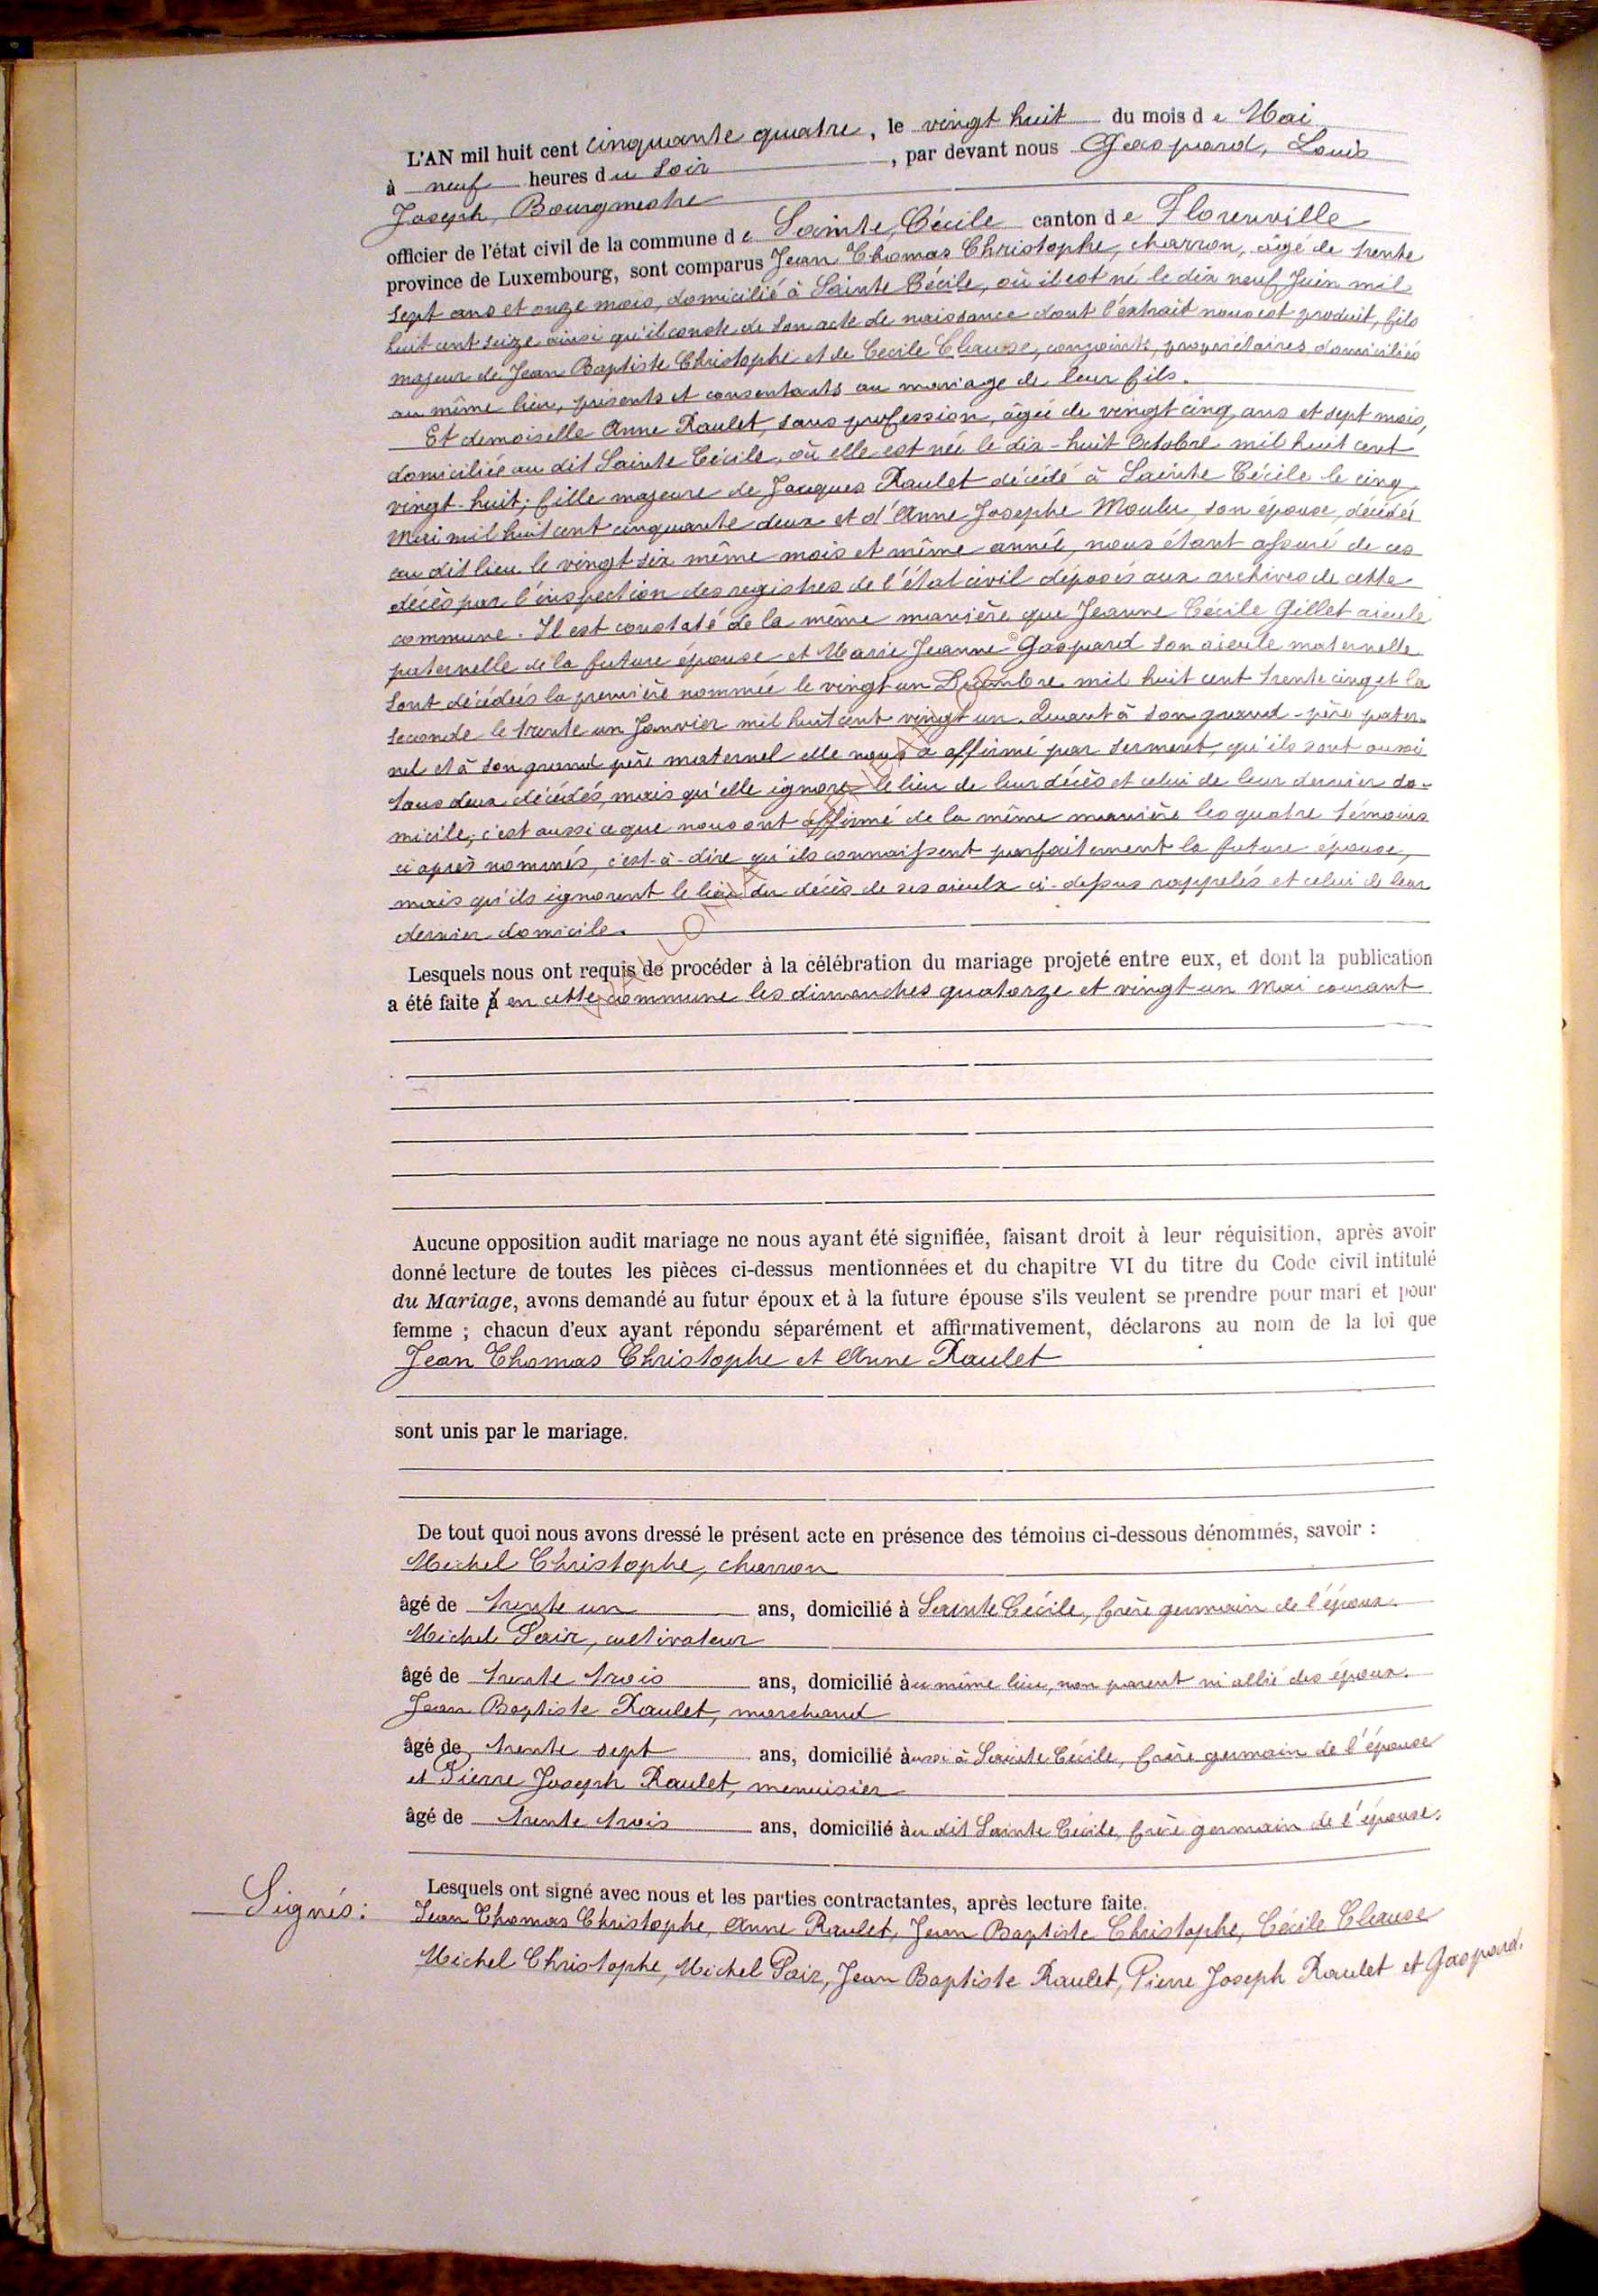 L'AN mil huit cent cinquante quatre, le vingt huit du mois de Mai
à neuf heures du soir, par devant nous Gaspard, Louis
Joseph, Bourgmestre
officier de l'état civil de la commune de Sainte Cécile canton de Florenville
province de Luxembourg, sont comparus Jean Thomas Christophe, charron, âgé de trente
sept ans et onze mois, domicilié à Sainte Cécile, où il est né le dix neuf Juin mil
huit cent seize ainsi qu'il conste de son acte de naissance dont l'extrait nous est produit, fils
majeur de Jean Baptiste Christophe et de Cécile Clause, conjoints, propriétaires domiciliés
au même lieu, présents et consentants au mariage de leur fils.
Et demoiselle Anne Raulet, sans profession, âgée de vingt cinq ans et sept mois,
domiciliée au dit Sainte Cécile, où elle est née le dix-huit Octobre mil huit cent
vingt-huit; fille majeure de Jacques Raulet décédé à Sainte Cécile le cinq
Mai mil huit cent cinquante deux et d'Anne Josephe Mouler, son épouse, décédée
au dit lieu le vingt six même mois et même année, nous étant assuré de ces
décès par l'inspection des registres de l'état civil déposés aux archives de cette
commune. Il est constaté de la même manière que Jeanne Cécile Gillet aieule
paternelle de la future épouse et Marie Jeanne Gaspard son aieule maternelle
sont décédées la première nommée le vingt un Décembre mil huit cent trente cinq et la
seconde le trente un Janvier mil huit cent vingt un. Quant à son grand-père pater-
nel et à son grand père maternel elle nous a affirmé par serment, qu'ils sont aussi
tous deux décédés, mais qu'elle ignore le lieu de leur décès et celui de leur dernier do-
micile; c'est aussi ce que nous ont affirmé de la même manière les quatre témoins
ci après nommés, c'est-à-dire qu'ils connaissent parfaitement la future épouse,
mais qu'ils ignorent le lieu du décès de ses aieulx ci-dessus rappelés et celui de leur
dernier domicile.
Lesquels nous ont requis de procéder à la célébration du mariage projeté entre eux, et dont la publication
a été faite à en cette commune les dimanches quatorze et vingt un Mai courant
Aucune opposition audit mariage ne nous ayant été signifiée, faisant droit à leur réquisition, après avoir
donné lecture de toutes les pièces ci-dessus mentionnées et du chapitre VI du titre du Code civil intitulé
du Mariage, avons demandé au futur époux et à la future épouse s'ils veulent se prendre pour mari et pour
femme ; chacun d'eux ayant répondu séparément et affirmativement, déclarons au nom de la loi que
Jean Thomas Christophe et Anne Raulet
sont unis par le mariage.
De tout quoi nous avons dressé le présent acte en présence des témoins ci-dessous dénommés, savoir :
Michel Christophe, charron
âgé de trente un ans, domicilié à Sainte Cécile, frère germain de l'époux.
Michel Poix, cultivateur
âgé de trente trois ans, domicilié au même lieu, non parent ni allié des époux.
Jean Baptiste Raulet, marchand
âgé de trente sept ans, domicilié aussi à Sainte Cécile, frère germain de l'épouse
et Pierre Joseph Raulet, menuisier
âgé de trente trois ans, domicilié au dit Sainte Cécile, frère germain de l'épouse.
Lesquels ont signé avec nous et les parties contractantes, après lecture faite.
Signés: Jean Thomas Christophe, Anne Raulet, Jean Baptiste Christophe, Cécile Clause
Michel Christophe, Michel Poix, Jean Baptiste Raulet, Pierre Joseph Raulet et Gaspard.